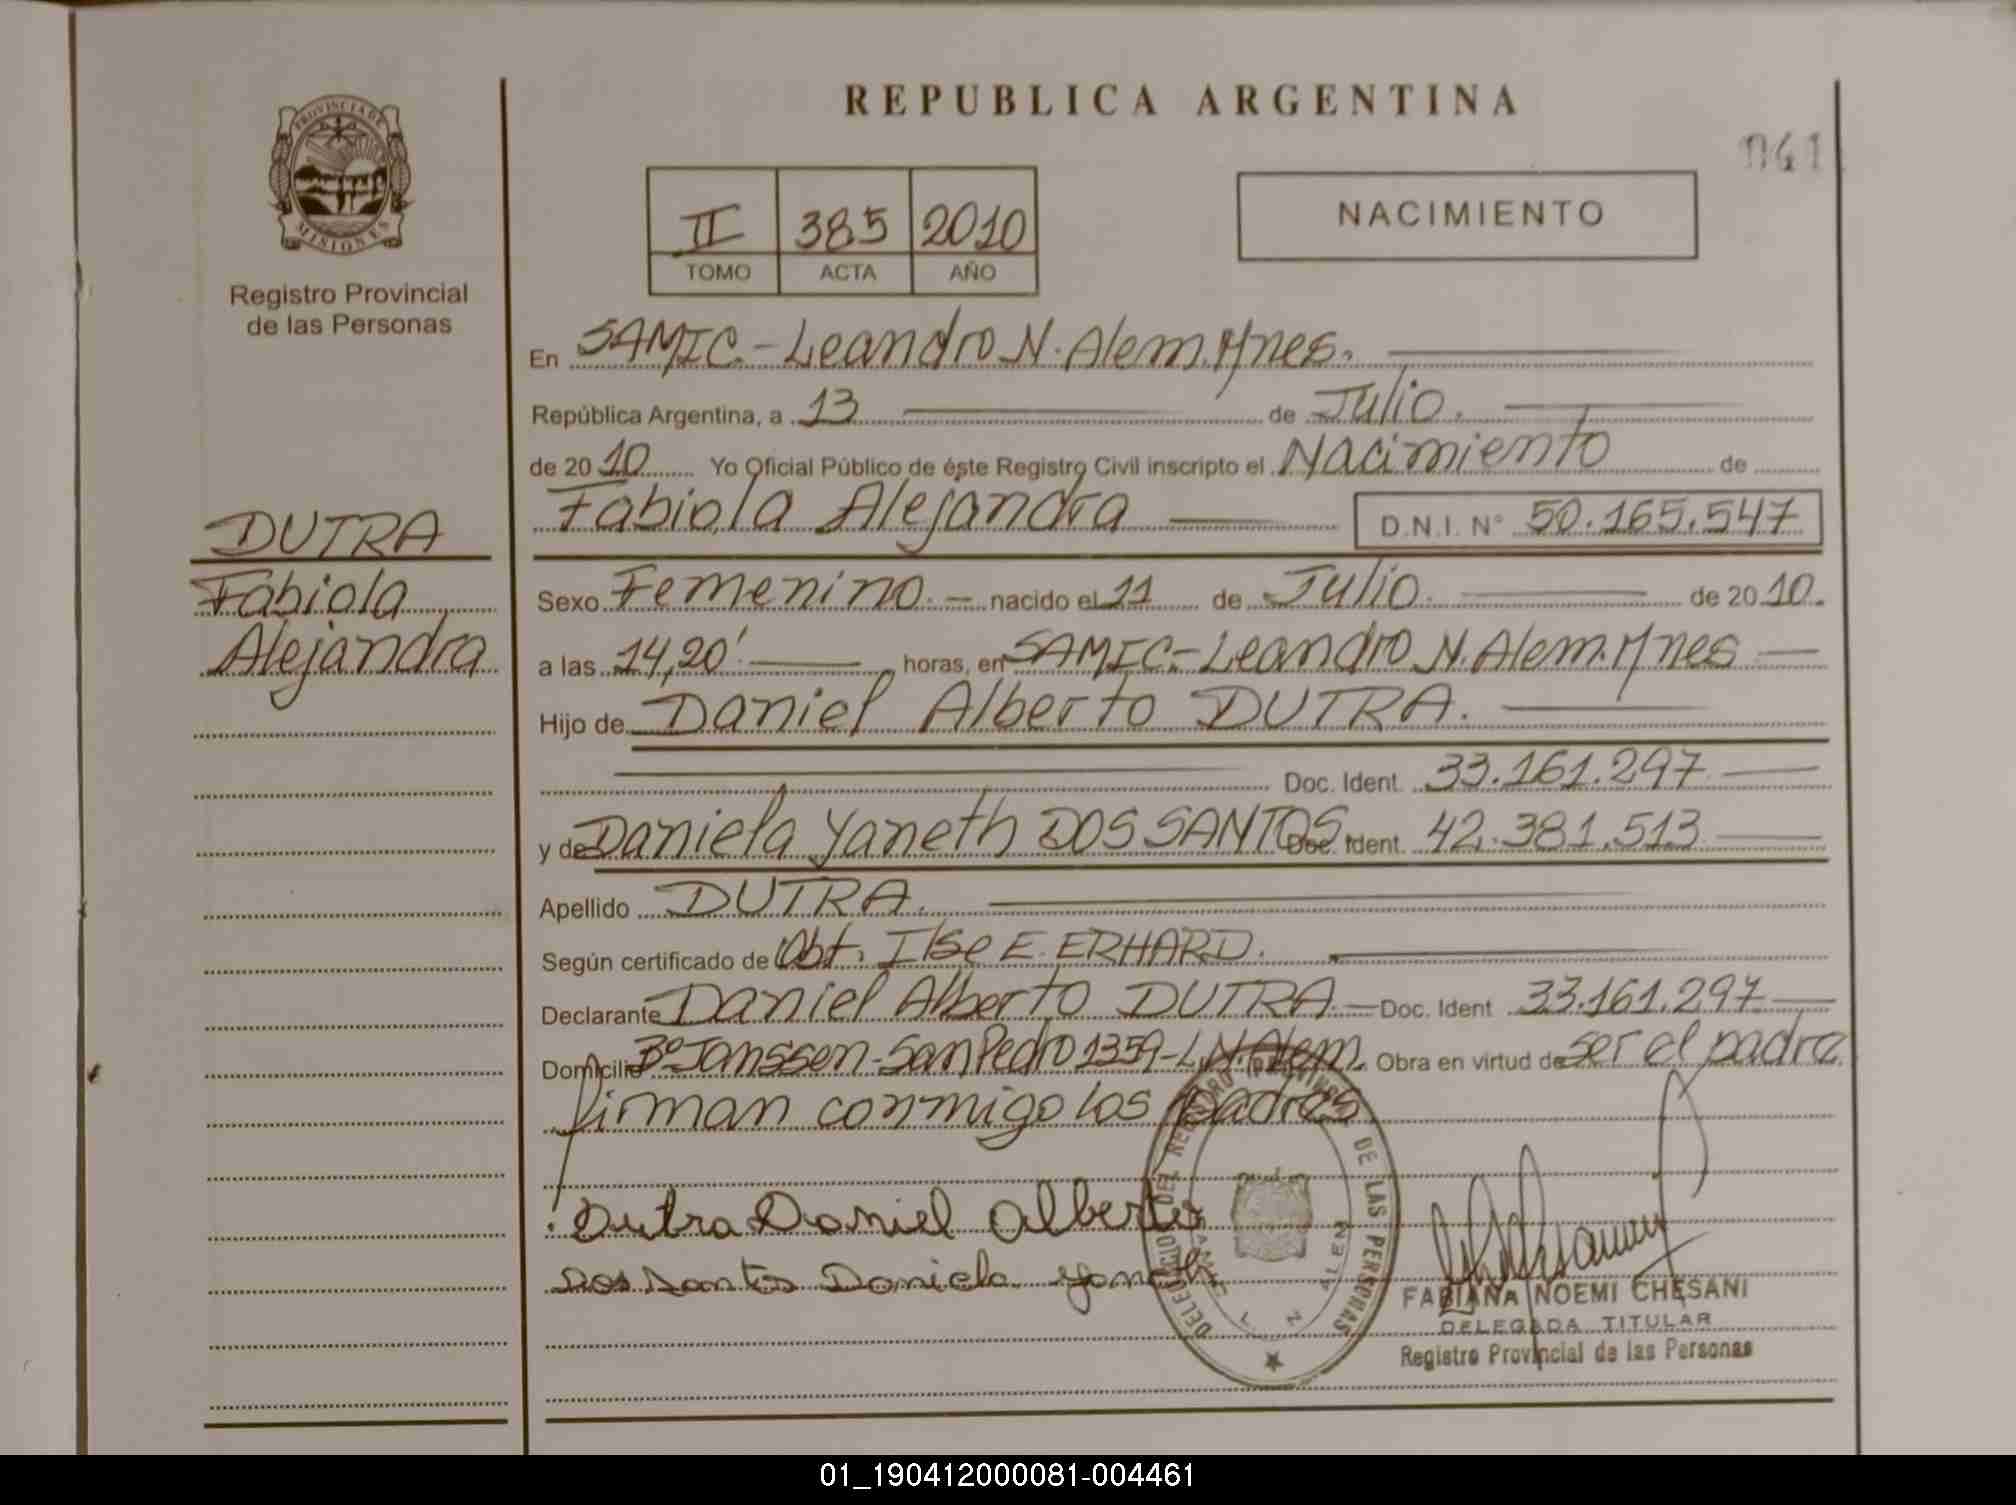 REPUBLICA ARGENTINA
041
PROVINCIA DE
MISIONES
Registro Provincial
de las Personas
II 385 2010
TOMO ACTA AÑO
NACIMIENTO
En SAMIC.- Leandro N. Alem. Mnes.
República Argentina, a 13 de Julio.
de 2010 Yo Oficial Público de éste Registro Civil inscripto el Nacimiento de
Fabiola Alejandra D.N.I. N° 50.165.547
DUTRA
Fabiola
Alejandra
Sexo Femenino. nacido el 11 de Julio. de 2010.
a las 14,20' horas, en SAMIC.- Leandro N. Alem. Mnes
Hijo de Daniel Alberto DUTRA.
Doc. Ident. 33.161.297
y de Daniela Yaneth DOS SANTOS Doc. Ident. 42.381.513
Apellido DUTRA.
Según certificado de Obt. Ilse E. ERHARD.
Declarante Daniel Alberto DUTRA. Doc. Ident 33.161.297
Domicilio B° Janssen- San Pedro 1359- L.N. Alem. Obra en virtud de ser el padre
firman conmigo los padres
Dutra Daniel Alberto
Dos Santos Daniela Yaneth
DELEGACION DEL REGISTRO PROVINCIAL DE LAS PERSONAS
L. N. ALEM
FABIANA NOEMI CHESANI
DELEGADA TITULAR
Registro Provincial de las Personas
01_190412000081-004461